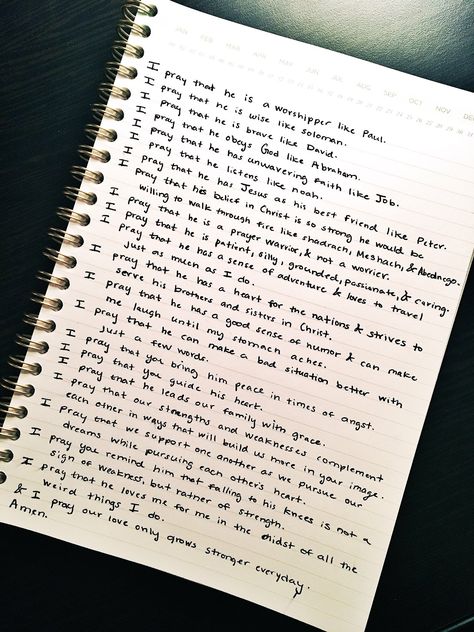 JAN FEB MAR APR MAY JUN JUL AUG SEP OCT NOV DEC
I pray that he is a worshipper like Paul.
I pray that he is wise like soloman.
I pray that he is brave like David.
I pray that he obeys God like Abraham.
I pray that he has unwavering faith like Job.
I pray that he listens like noah.
I pray that he has Jesus as his best friend like Peter.
I pray that his belief in Christ is so strong he would be
willing to walk through fire like shadrach, Meshach, & Abednego.
I pray that he is a prayer warrior, & not a worrier.
I pray that he is patient, silly, grounded, passionate, & caring.
I pray that he has a sense of adventure & loves to travel
just as much as I do.
I pray that he has a heart for the nations & strives to
serve his brothers and sisters in Christ.
I pray that he has a good sense of humor & can make
me laugh until my stomach aches.
I pray that he can make a bad situation better with
just a few words.
I pray that you bring him peace in times of angst.
I pray that you guide his heart.
I pray that he leads our family with grace.
I pray that our strengths and weaknesses complement
each other in ways that will build us more in your image.
I pray that we support one another as we pursue our
dreams while pursuing each other's heart.
I pray you remind him that falling to his knees is not a
sign of weakness, but rather of strength.
I pray that he loves me for me in the midst of all the
weird things I do.
& I pray our love only grows stronger everyday.
Amen.